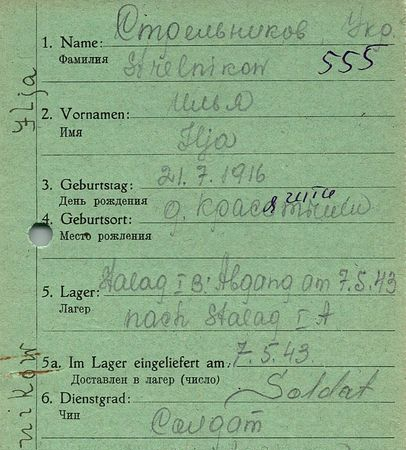 Ilja
nikow
1. Name: Стрельников, Укр.
Фамилия Strelnikow 555
2. Vornamen: Илья
Имя Ilja
3. Geburtstag: 21.7.1916
День рождения
4. Geburtsort: д.
Место рождения
5. Lager: Stalag I B. Abgang am 7.5.43
Лагер nach Stalag I A
5a. Im Lager eingeliefert am: 7.5.43.
Доставлен в лагер (число)
6. Dienstgrad: Soldat
Чин Солдат